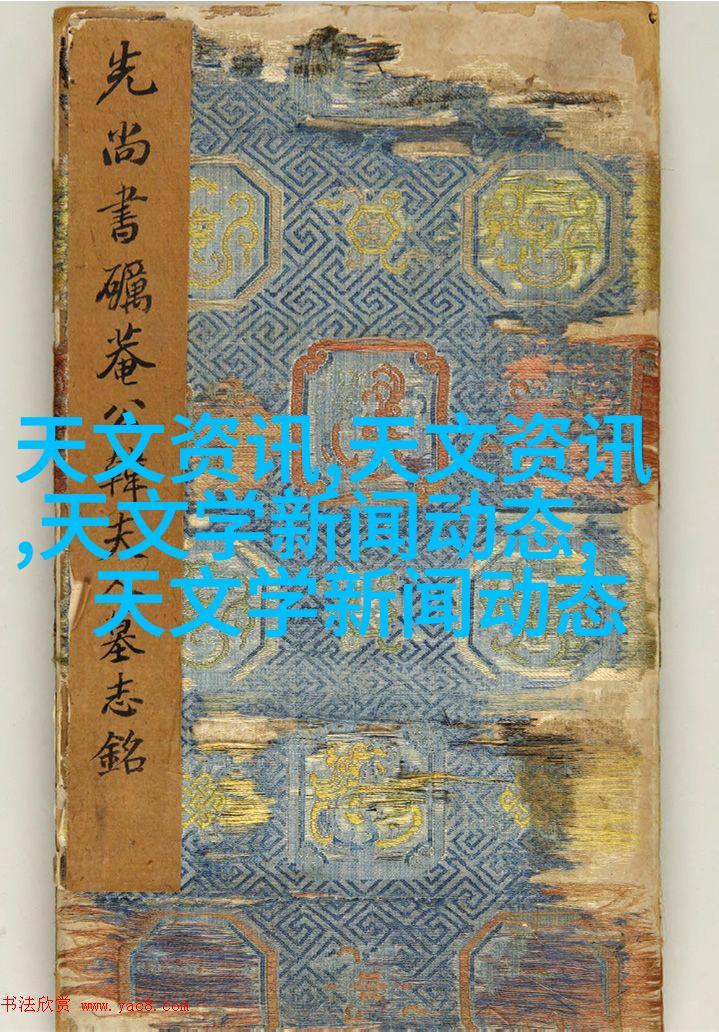 先尚書礪菴公韓夫人墓志銘
天文资讯,天文资讯
,天文学新闻动态,
天文学新闻动态
书法欣赏 www.yac8.com